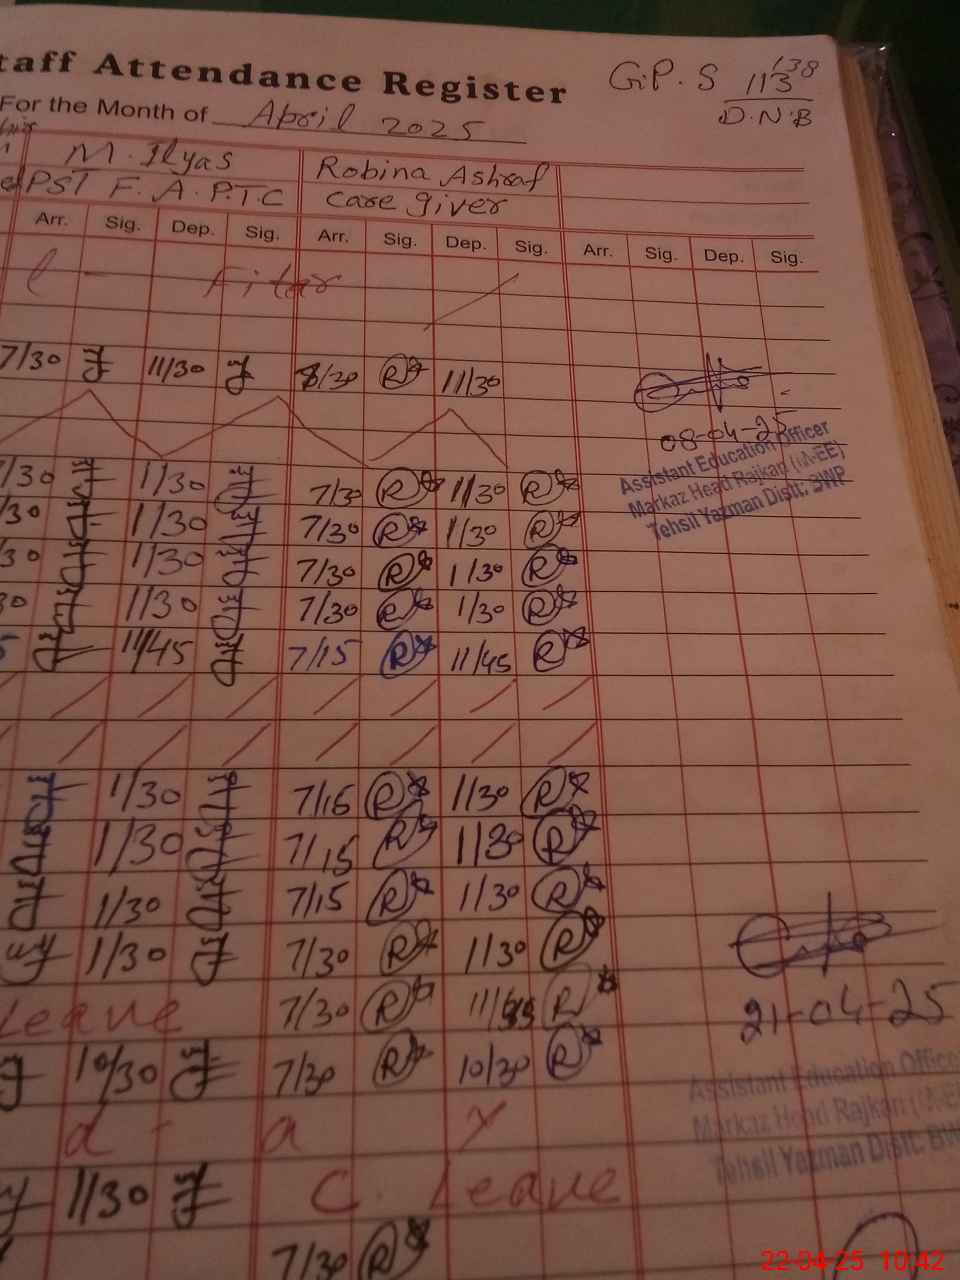 taff Attendance Register G.P.S 113 138
For the Month of April 2025 D.N.B
M. Ilyas Robina Ashraf
PST F.A.P.T.C Care giver
Arr. Sig. Dep. Sig. Arr. Sig. Dep. Sig. Arr. Sig. Dep. Sig.
l Fiter
7/30 11/30 8/30 R 11/30
08-04-25
Assistant Education Officer
Markaz Head Rajkan (M-EE)
Tehsil Yazman Distt: BWP
/30 1/30 7/30 R 1/30 R
/30 1/30 7/30 R 1/30 R
/30 1/30 7/30 R 1/30 R
30 1/30 7/30 R 1/30 R
11/45 7/15 R 11/45 R
1/30 7/15 R 1/30 R
1/30 7/15 R 1/30 R
1/30 7/15 R 1/30 R
1/30 7/30 R 1/30 R
Leave 7/30 R R
21-04-25
10/30 7/30 R 10/30 R
Assistant Education Office
Markaz Head Rajkan (M-EE
Tehsil Yazman Distt: BW
d a y
1/30 C. Leave
7/30 R
22-04-25 10:42